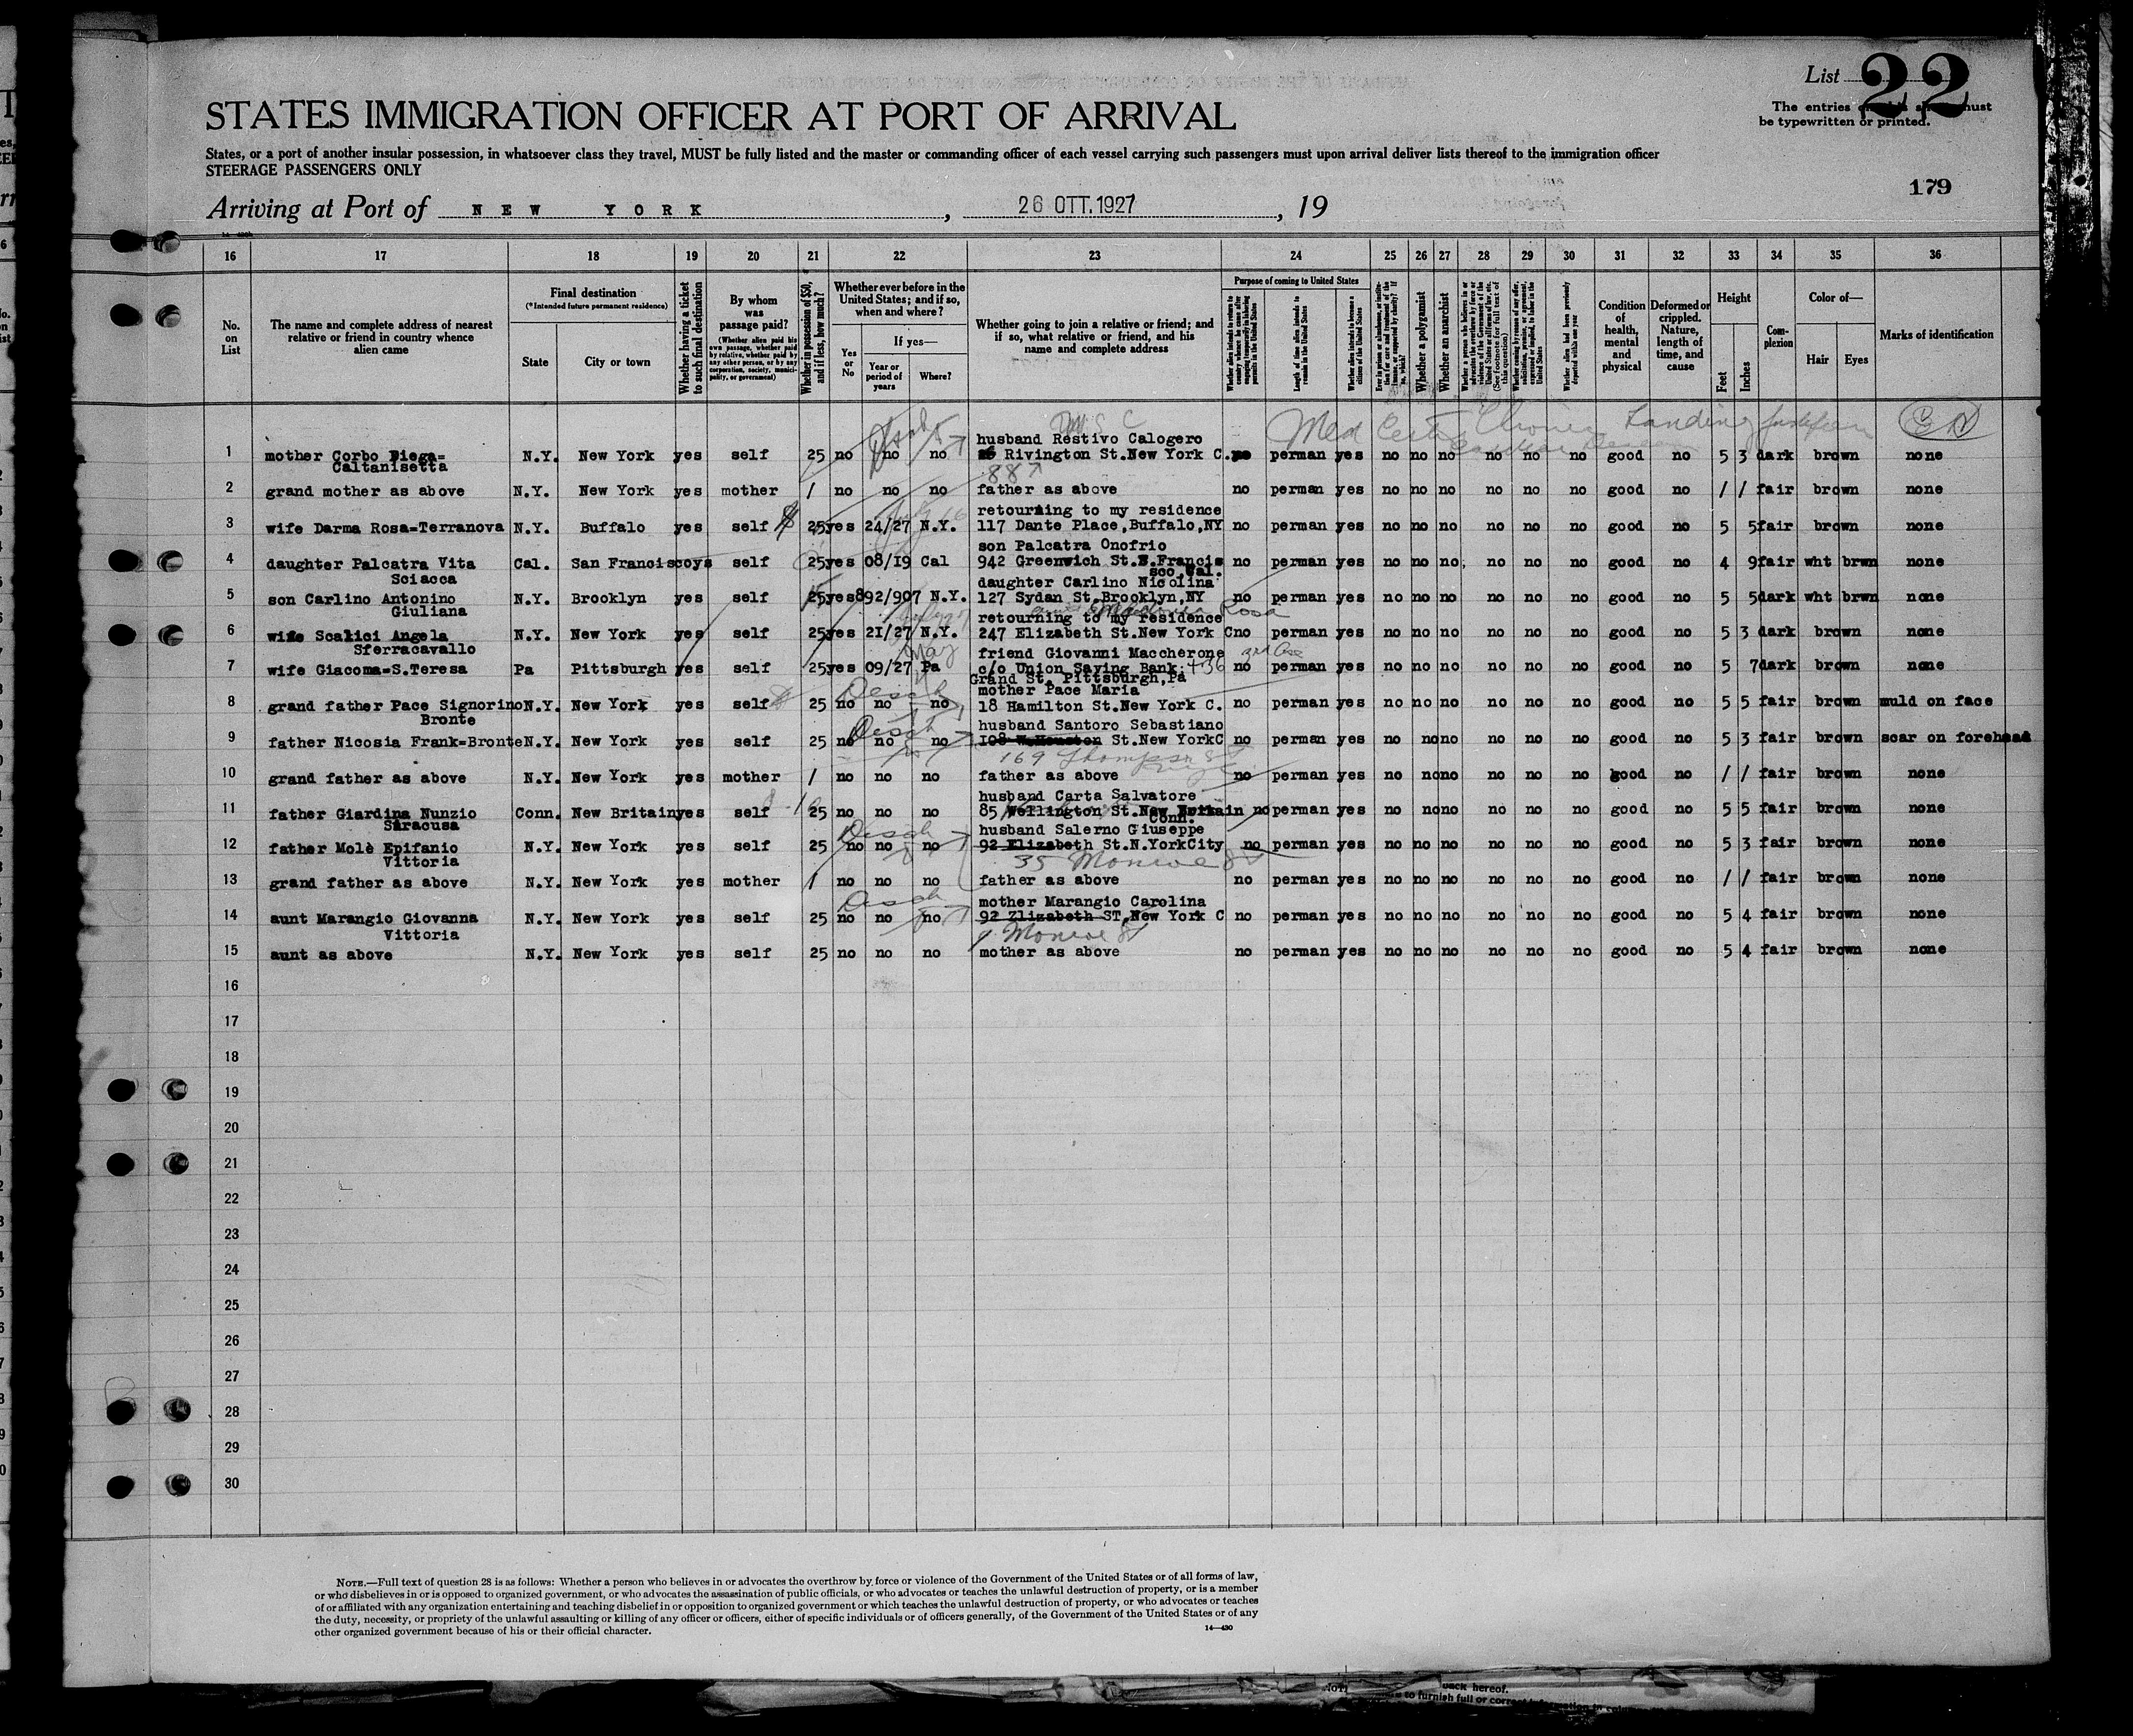 List 22
The entries on this sheet must
be typewritten or printed.
STATES IMMIGRATION OFFICER AT PORT OF ARRIVAL
States, or a port of another insular possession, in whatsoever class they travel, MUST be fully listed and the master or commanding officer of each vessel carrying such passengers must upon arrival deliver lists thereof to the immigration officer
STEERAGE PASSENGERS ONLY
179
Arriving at Port of NEW YORK, 26 OTT.1927, 19
16 17 18 19 20 21 22 23 24 25 26 27 28 29 30 31 32 33 34 35 36
No. on List
The name and complete address of nearest relative or friend in country whence alien came
Final destination
(*Intended future permanent residence)
State
City or town
Whether having a ticket to such final destination
By whom was passage paid?
(Whether alien paid his own passage, whether paid by relative, whether paid by any other person, or by any corporation, society, municipality, or government)
Whether in possession of $50, and if less, how much?
Whether ever before in the United States; and if so, when and where?
Yes or No
If yes—
Year or period of years
Where?
Whether going to join a relative or friend; and if so, what relative or friend, and his name and complete address
Purpose of coming to United States
Length of time alien intends to remain in the United States
Whether alien intends to become a citizen of the United States
Whether a polygamist
Whether an anarchist
Condition of health, mental and physical
Deformed or crippled. Nature, length of time, and cause
Height
Feet
Inches
Complexion
Color of—
Hair
Eyes
Marks of identification
Med Cert
husband Restivo Calogero
1 mother Corbo Diega= N.Y. New York yes self 25 no no no Rivington St.New York C. no perman yes no no no no no no good no 5 3 dark brown none
Caltanisetta
887
2 grand mother as above N.Y. New York yes mother / no no no father as above no perman yes no no no no no no good no / / fair brown none
retourning to my residence
3 wife Darma Rosa=Terranova N.Y. Buffalo yes self 25 yes 24/27 N.Y. 117 Dante Place,Buffalo,NY no perman yes no no no no no no good no 5 5 fair brown none
son Palcatra Onofrio
4 daughter Palcatra Vita Cal. San Francisco ys self 25 yes 08/19 Cal 942 Greenwich St.S.Francis no perman yes no no no no no no good no 4 9 fair wht brwn none
Sciacca sco,Cal.
daughter Carlino Nicolina
5 son Carlino Antonino N.Y. Brooklyn yes self 25 yes 892/907 N.Y. 127 Sydan St.Brooklyn,NY no perman yes no no no no no no good no 5 5 dark wht brwn none
Giuliana
retourning to my residence
6 wife Scalici Angela N.Y. New York yes self 25 yes 21/27 N.Y. 247 Elizabeth St.New York C no perman yes no no no no no no good no 5 3 dark brown none
Sferracavallo
May
friend Giovanni Maccherone
7 wife Giacoma=S.Teresa Pa Pittsburgh yes self 25 yes 09/27 Pa c/o Union Saving Bank 436 no perman yes no no no no no no good no 5 7 dark brown none
Grand St. Pittsburgh,Pa
mother Pace Maria
8 grand father Pace Signorino N.Y. New York yes self 25 no no no 18 Hamilton St.New York C. no perman yes no no no no no no good no 5 5 fair brown muld on face
Bronte
husband Santoro Sebastiano
9 father Nicosia Frank=Bronte N.Y. New York yes self 25 no no no 108 W.Houston St.New YorkC no perman yes no no no no no no good no 5 3 fair brown scar on forehead
169 Thompson St
10 grand father as above N.Y. New York yes mother / no no no father as above no perman yes no no no no no no good no / / fair brown none
husband Carta Salvatore
11 father Giardina Nunzio Conn. New Britain yes self 25 no no no 85 Wellington St.New Britain no perman yes no no no no no no good no 5 5 fair brown none
Siracusa Conn.
husband Salerno Giuseppe
12 father Molè Epifanio N.Y. New York yes self 25 no no no 92 Elizabeth St.N.YorkCity no perman yes no no no no no no good no 5 3 fair brown none
Vittoria
35 Monroe St
13 grand father as above N.Y. New York yes mother / no no no father as above no perman yes no no no no no no good no / / fair brown none
mother Marangio Carolina
14 aunt Marangio Giovanna N.Y. New York yes self 25 no no no 92 Zlizabeth ST,New York C no perman yes no no no no no no good no 5 4 fair brown none
Vittoria
Monroe St
15 aunt as above N.Y. New York yes self 25 no no no mother as above no perman yes no no no no no no good no 5 4 fair brown none
16
17
18
19
20
21
22
23
24
25
26
27
28
29
30
NOTE.—Full text of question 28 is as follows: Whether a person who believes in or advocates the overthrow by force or violence of the Government of the United States or of all forms of law,
or who disbelieves in or is opposed to organized government, or who advocates the assassination of public officials, or who advocates or teaches the unlawful destruction of property, or is a member
of or affiliated with any organization entertaining and teaching disbelief in or opposition to organized government or which teaches the unlawful destruction of property, or who advocates or teaches
the duty, necessity, or propriety of the unlawful assaulting or killing of any officer or officers, either of specific individuals or of officers generally, of the Government of the United States or of any
other organized government because of his or their official character.
14—430
back hereof.
to furnish full or correct